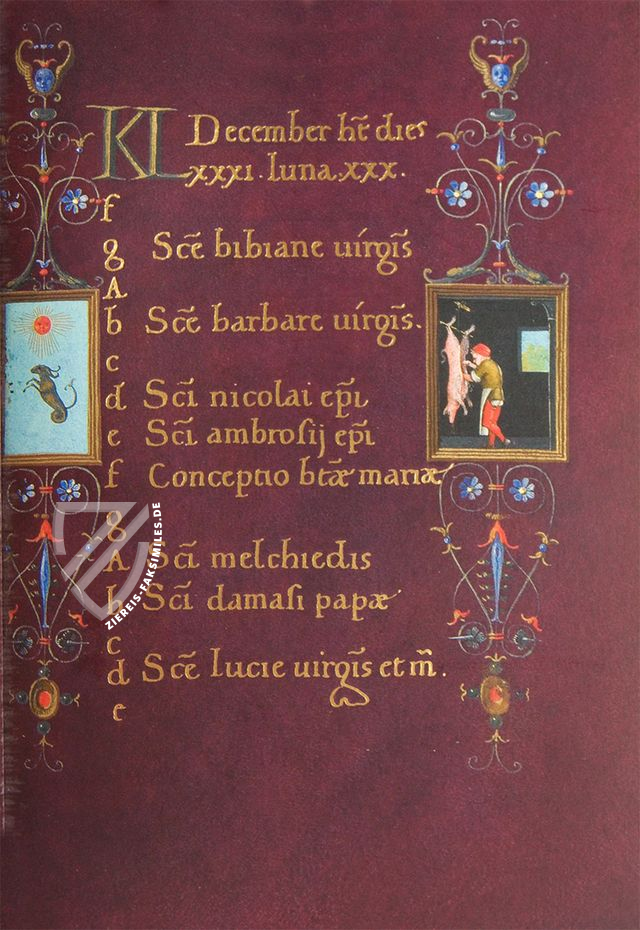 KL December hr̄ dies
xxxi. luna. xxx.
f
g Scē bibiane uírgīs
A
b Scē barbare uírgīs.
c
d Scī nicolai epī
e Scī ambrosij epī
f Conceptio btæ mariæ
g
A Scī melchiedis
b Scī damasi papæ
c
d Scē lucie uirgīs et m̄.
e
ZIEREIS-FAKSIMILES.DE